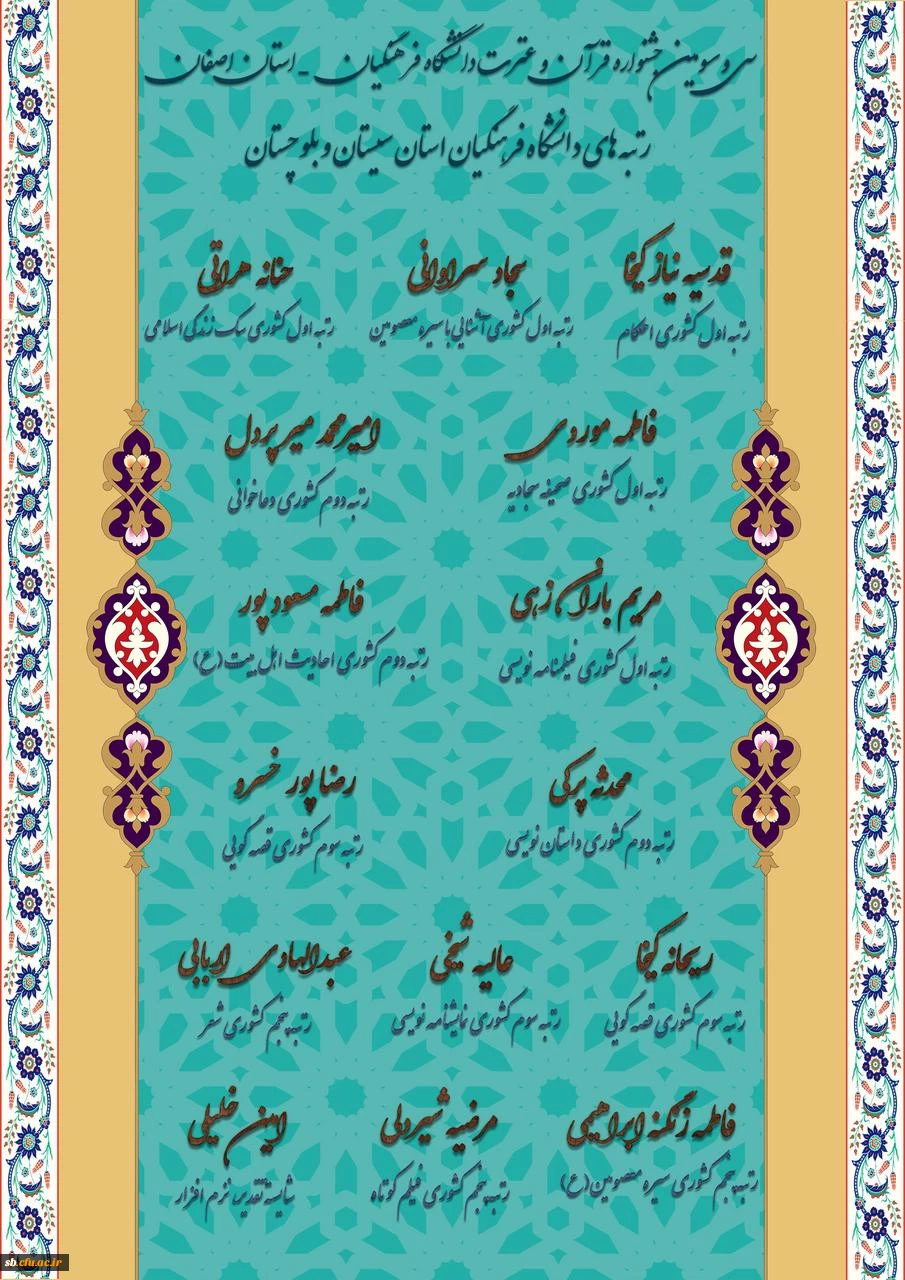 سی و سومین جشنواره قرآن و عترت دانشگاه فرهنگیان - استان اصفهان
رتبه های دانشگاه فرهنگیان استان سیستان و بلوچستان
قدسیه نیاز کیخا سجاد سراوانی حنانه هراتی
رتبه اول کشوری احکام رتبه اول کشوری آشنایی با سیره معصومین رتبه اول کشوری سبک زندگی اسلامی
فاطمه مورو دی امیرمحمد میر پردل
رتبه اول کشوری صحیفه سجادیه رتبه دوم کشوری دعاخوانی
مریم باران زهی فاطمه مسعود پور
رتبه اول کشوری فیلمنامه نویسی رتبه دوم کشوری احادیث اهل بیت (ع)
محدثه پرکی رضا پور خسرو
رتبه دوم کشوری داستان نویسی رتبه سوم کشوری قصه گویی
ریحانه کیخا عالیه شیخی عبدالهادی اربابی
رتبه سوم کشوری قصه گویی رتبه سوم کشوری نمایشنامه نویسی رتبه پنجم کشوری شعر
فاطمه زنگنه ابراهیمی مرضیه شیرولی امین خلیلی
رتبه پنجم کشوری سیره معصومین (ع) رتبه پنجم کشوری فیلم کوتاه شایسته تقدیر، نرم افزار
sb.cfu.ac.ir